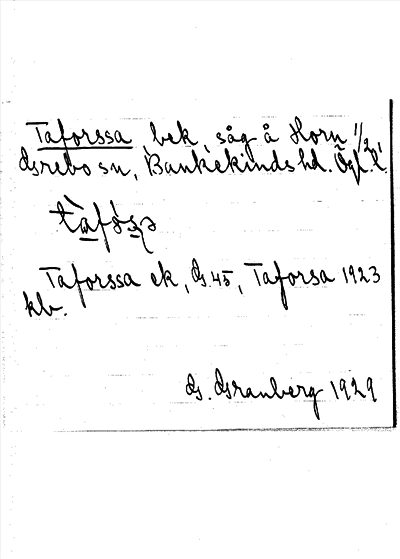 Taforssa, bek, såg å Horn 1/2
Grebo sn, Bankekinds hd. Ögl. l.
Taforssa ek, G. 45, Taforsa 1923
kb.
G. Granberg 1929